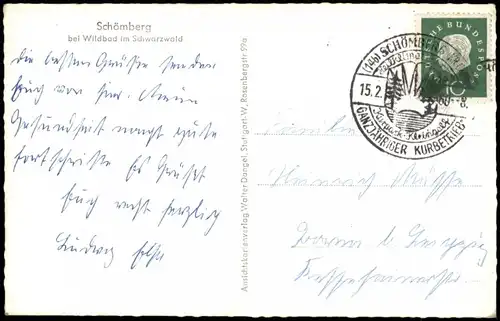 Schömberg
bei Wildbad im Schwarzwald
die besten Grüße senden
Euch von hier. Meine
Gesundheit macht gute
fortschritte Es Grüßt
Euch recht herzlich
Ludwig
Ansichtskartenverlag Walter Dangel, Stuttgart-W, Rosenbergstr. 99a
DEUTSCHE BUNDESPOST
10
(14b) SCHÖMBERG
15.2.
GANZJÄHRIGER KURBETRIEB
Familie
Heinrich
bei Leipzig